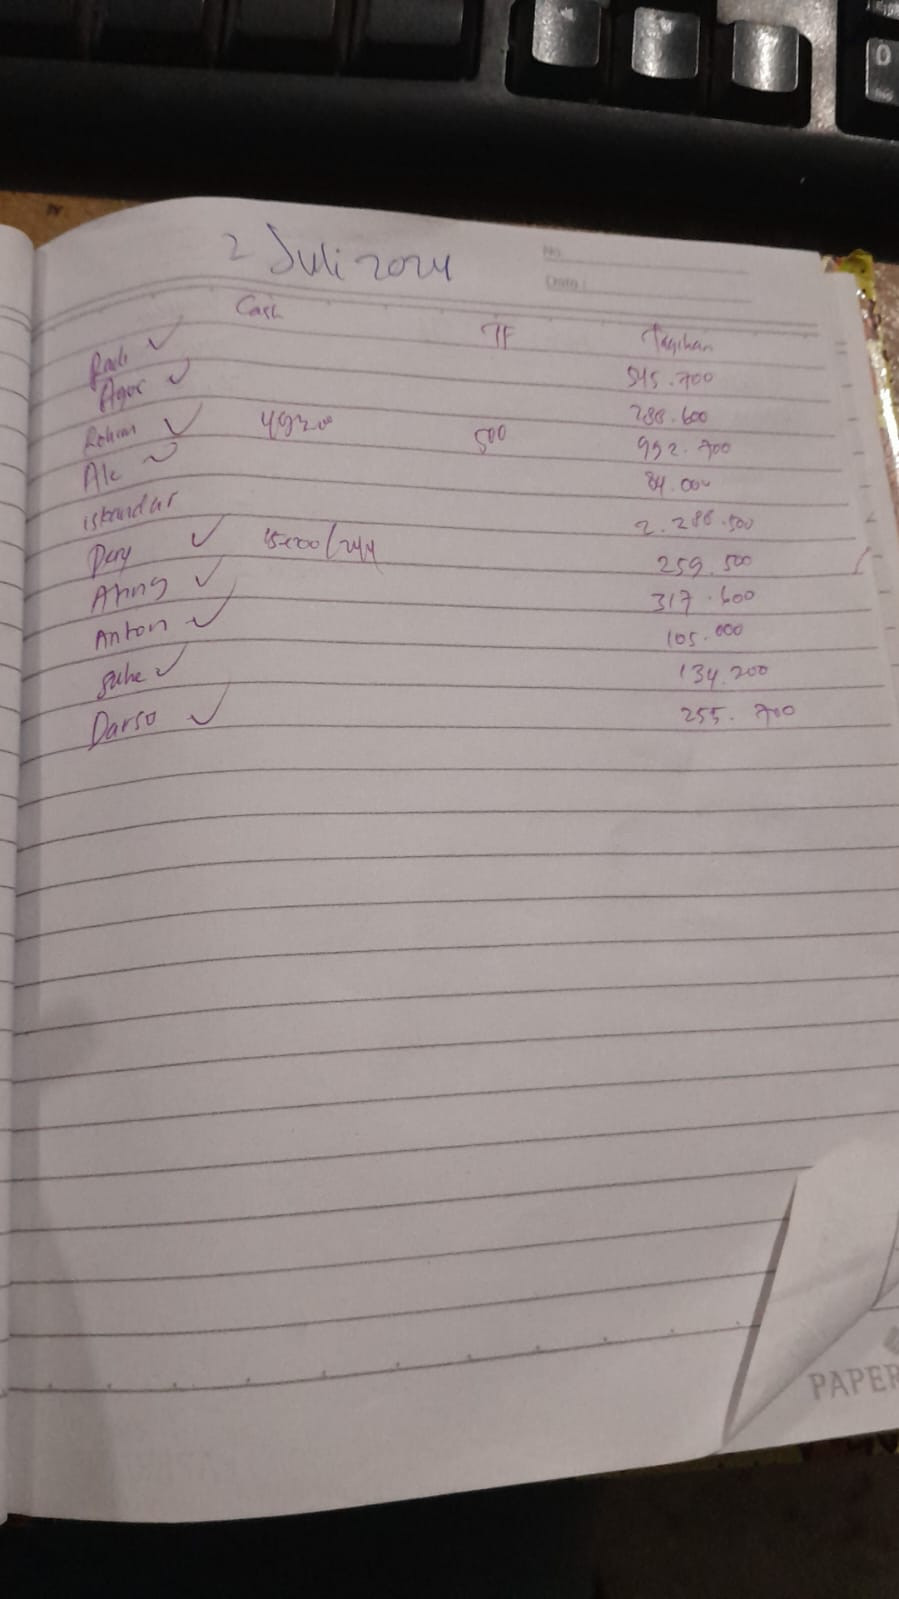 2 Juli 2024
No.
Date :
Cash TF Tagihan
Radi ✓ 545.700
Agus ✓ 288.600
Rohim ✓ 49200 500 992.700
Ale ✓ 84.000
iskandar 2.288.500
Deny ✓ 259.500
Ahng ✓ 317.600
Anton ✓ 105.000
Suhe ✓ 134.200
Darso ✓ 255.700
PAPER